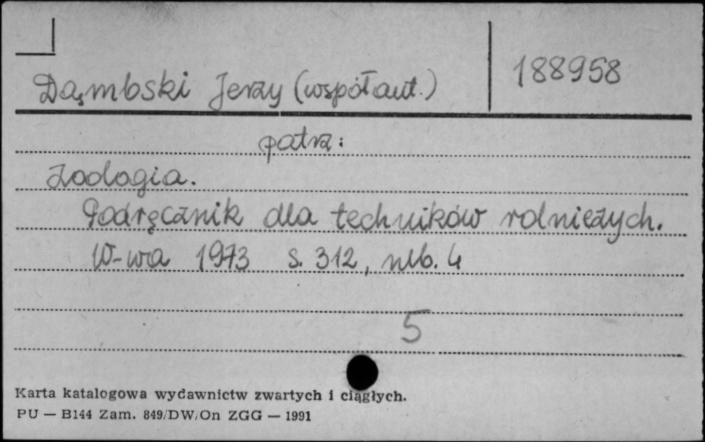 Dąmbski Jerzy (współaut.)
188958
patrz:
Zoologia.
Podręcznik dla techników rolniczych.
W-wa 1973 s. 312, nlb. 4
5
Karta katalogowa wydawnictw zwartych i ciągłych.
PU — B144 Zam. 849/DW/On ZGG — 1991